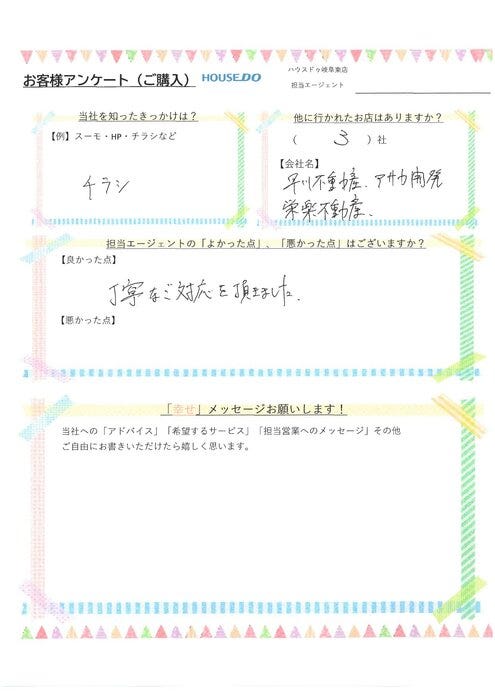 お客様アンケート（ご購入） HOUSEDO
ハウスドゥ岐阜東店
担当エージェント
当社を知ったきっかけは？
【例】スーモ・HP・チラシなど
チラシ
他に行かれたお店はありますか？
（ 3 ）社
【会社名】
早川不動産、アサカ開発
栄楽不動産、
担当エージェントの「よかった点」、「悪かった点」はございますか？
【良かった点】
丁寧なご対応を頂きました。
【悪かった点】
「幸せ」メッセージお願いします！
当社への「アドバイス」「希望するサービス」「担当営業へのメッセージ」その他
ご自由にお書きいただけたら嬉しく思います。